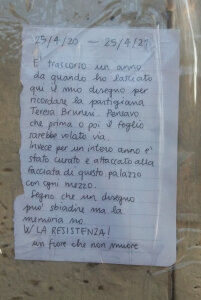 25/4/20 — 25/4/21
È trascorso un anno
da quando ho lasciato
qui il mio disegno per
ricordare la partigiana
Teresa Bruneri. Pensavo
che prima o poi il foglio
sarebbe volato via.
Invece per un intero anno è
stato curato e attaccato alla
facciata di questo palazzo
con ogni mezzo.
Segno che un disegno
può sbiadire ma la
memoria no.
W LA RESISTENZA!
un fiore che non muore